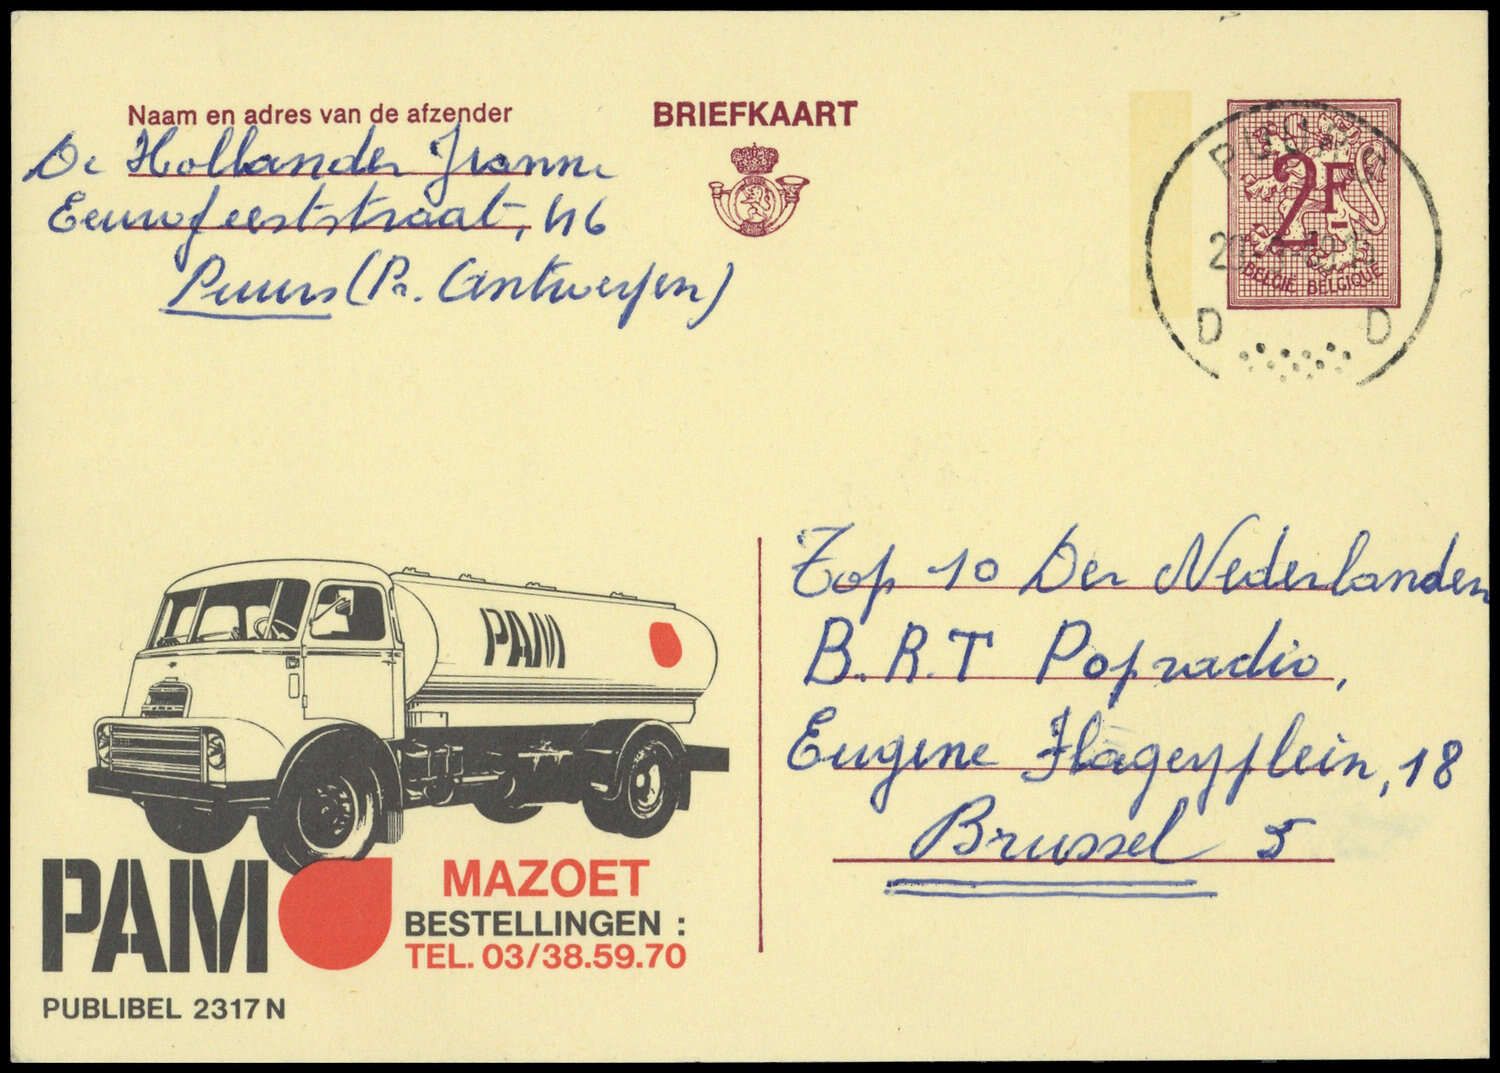 Naam en adres van de afzender
De Hollander Jranne
Eeuwfeeststraat, 46
Puurs (Pr. Antwerpen)
BRIEFKAART
2F
BELGIË BELGIQUE
D D
PAM
Top 10 Der Nederlanden
B.R.T Popradio,
Eugene Flageyplein, 18
Brussel 5
PAM
MAZOET
BESTELLINGEN :
TEL. 03/38.59.70
PUBLIBEL 2317 N